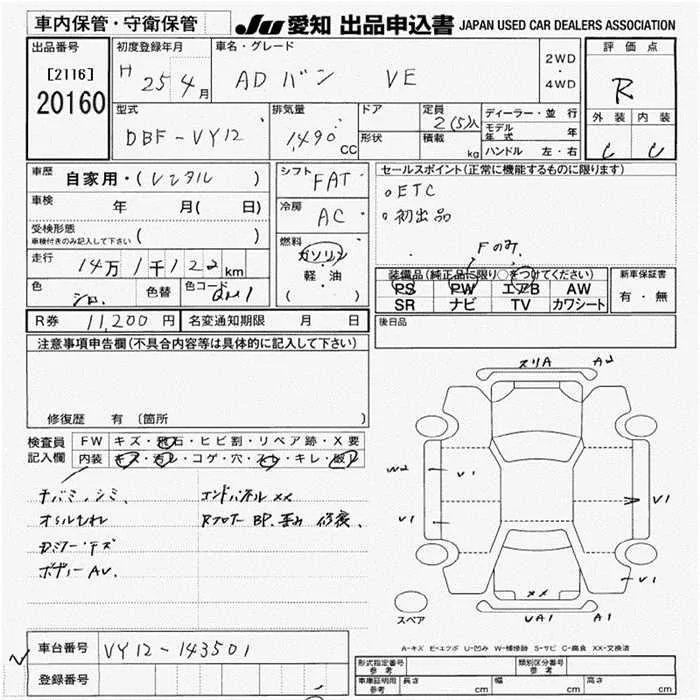 車内保管・守衛保管
JU 愛知 出品申込書 JAPAN USED CAR DEALERS ASSOCIATION
出品番号
[2116]
20160
初度登録年月
H 25 4月
車名・グレード
ADバン VE
2WD
・
4WD
評価点
R
外装 内装
型式
DBF-VY12
排気量
1,490 cc
ドア
形状
定員
2(5)人
積載 kg
ディーラー・並行
モデル年式 年
ハンドル 左・右
車歴
自家用・(レンタル )
車検
年 月( 日)
受検形態
車検付きのみ記入して下さい ( )
走行
14万1千122km
色
シロ.
色替
色コード
QM1
シフト
FAT
冷房
AC
燃料
ガソリン
・
軽・油
( )
セールスポイント(正常に機能するものに限ります)
ETC
初出品
Fのみ
装備品(純正品に限り○をつけてください)
PS PW エアB AW
SR ナビ TV カワシート
新車保証書
有・無
R券 11,200円
名変通知期限 月 日
後日品
注意事項申告欄(不具合内容等は具体的に記入して下さい)
修復歴 有 〔箇所 〕
検査員
記入欄
FW キズ・飛石・ヒビ割・リペア跡・X要
内装 キズ・汚レ・コゲ・穴・スレ・キレ・破レ
エンドパネル XX
Rフロアー BP.歪み 修復.
ボデー AU.
スリA
W2
V1
V1
V1
V1
XX
UA1
A1
スペア
A-キズ E-エクボ U-凹み W-補修跡 S-サビ C-腐食 XX-交換済
車台番号 VY12-143501
登録番号
形式指定番号
参考
類別区分番号
参考
車庫証明用
参考
長さ cm
幅 cm
高さ cm